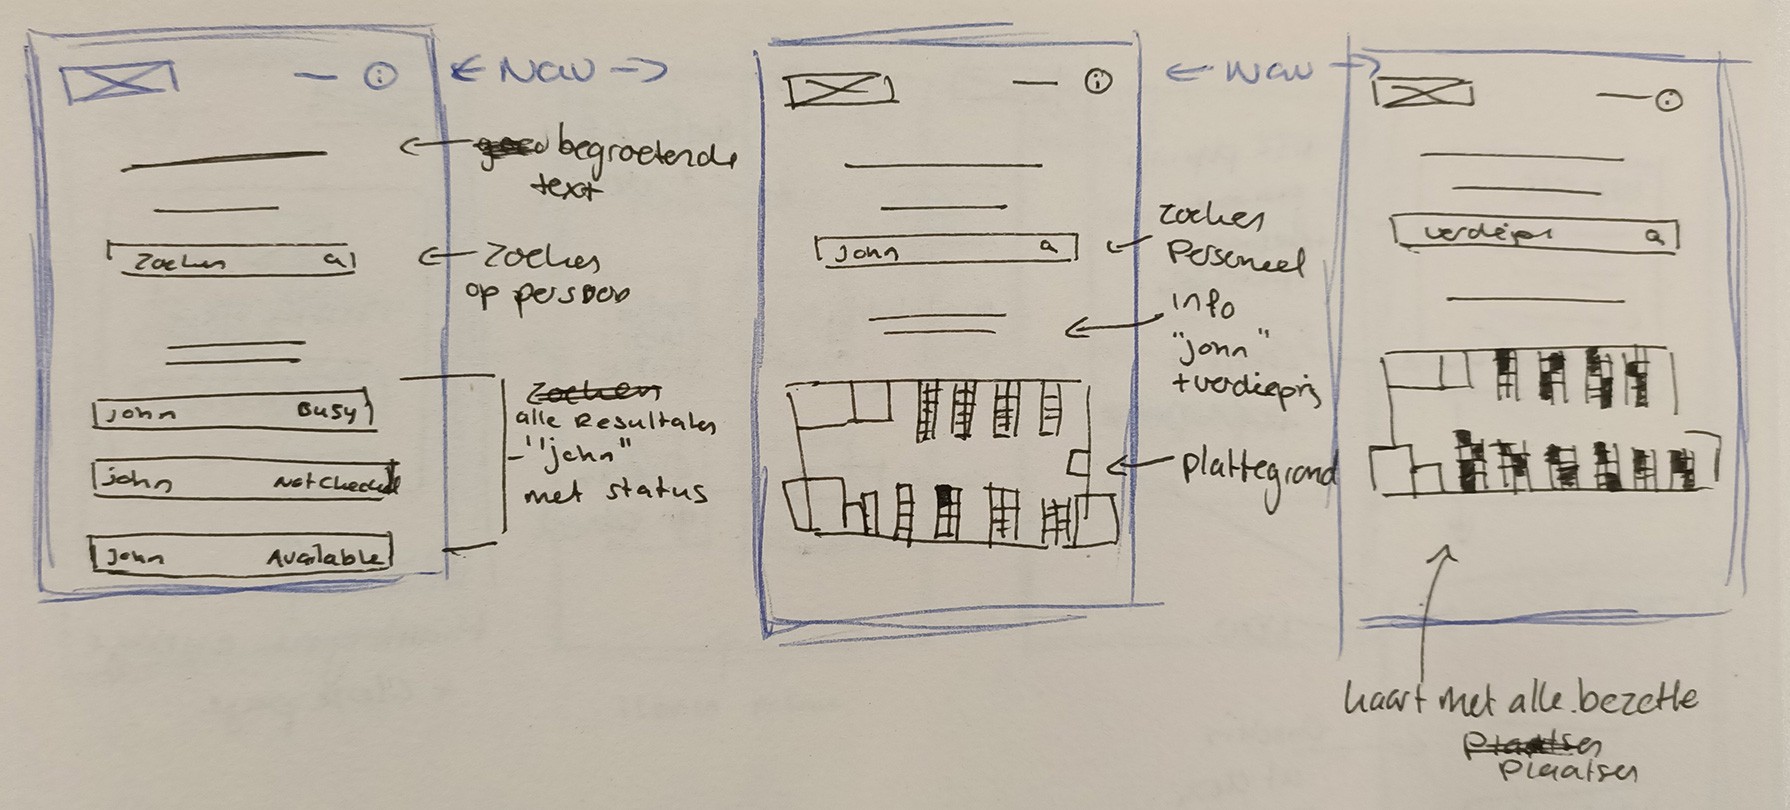 ← Nav →
begroetende
text
Zoeken
Zoeken
op persoon
John Busy
John Not Checked
John Available
Zoeken
alle Resultaten
"john"
met status
← Nav →
John
Zoeken
Personeel
info
"john"
+ verdieping
plattegrond
verdieping
kaart met alle bezette
plaatsen
plaatsen